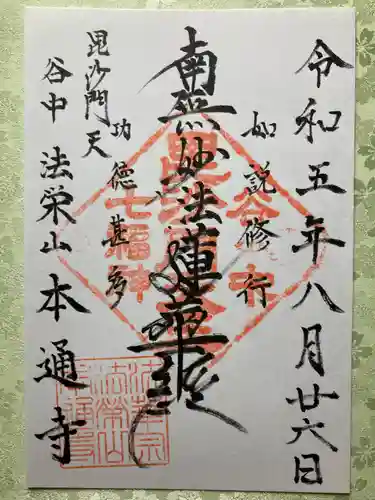 令和五年八月廿六日
如説修行
南無妙法蓮華経
功徳甚多
毘沙門天
谷中 法栄山 本通寺
七福神